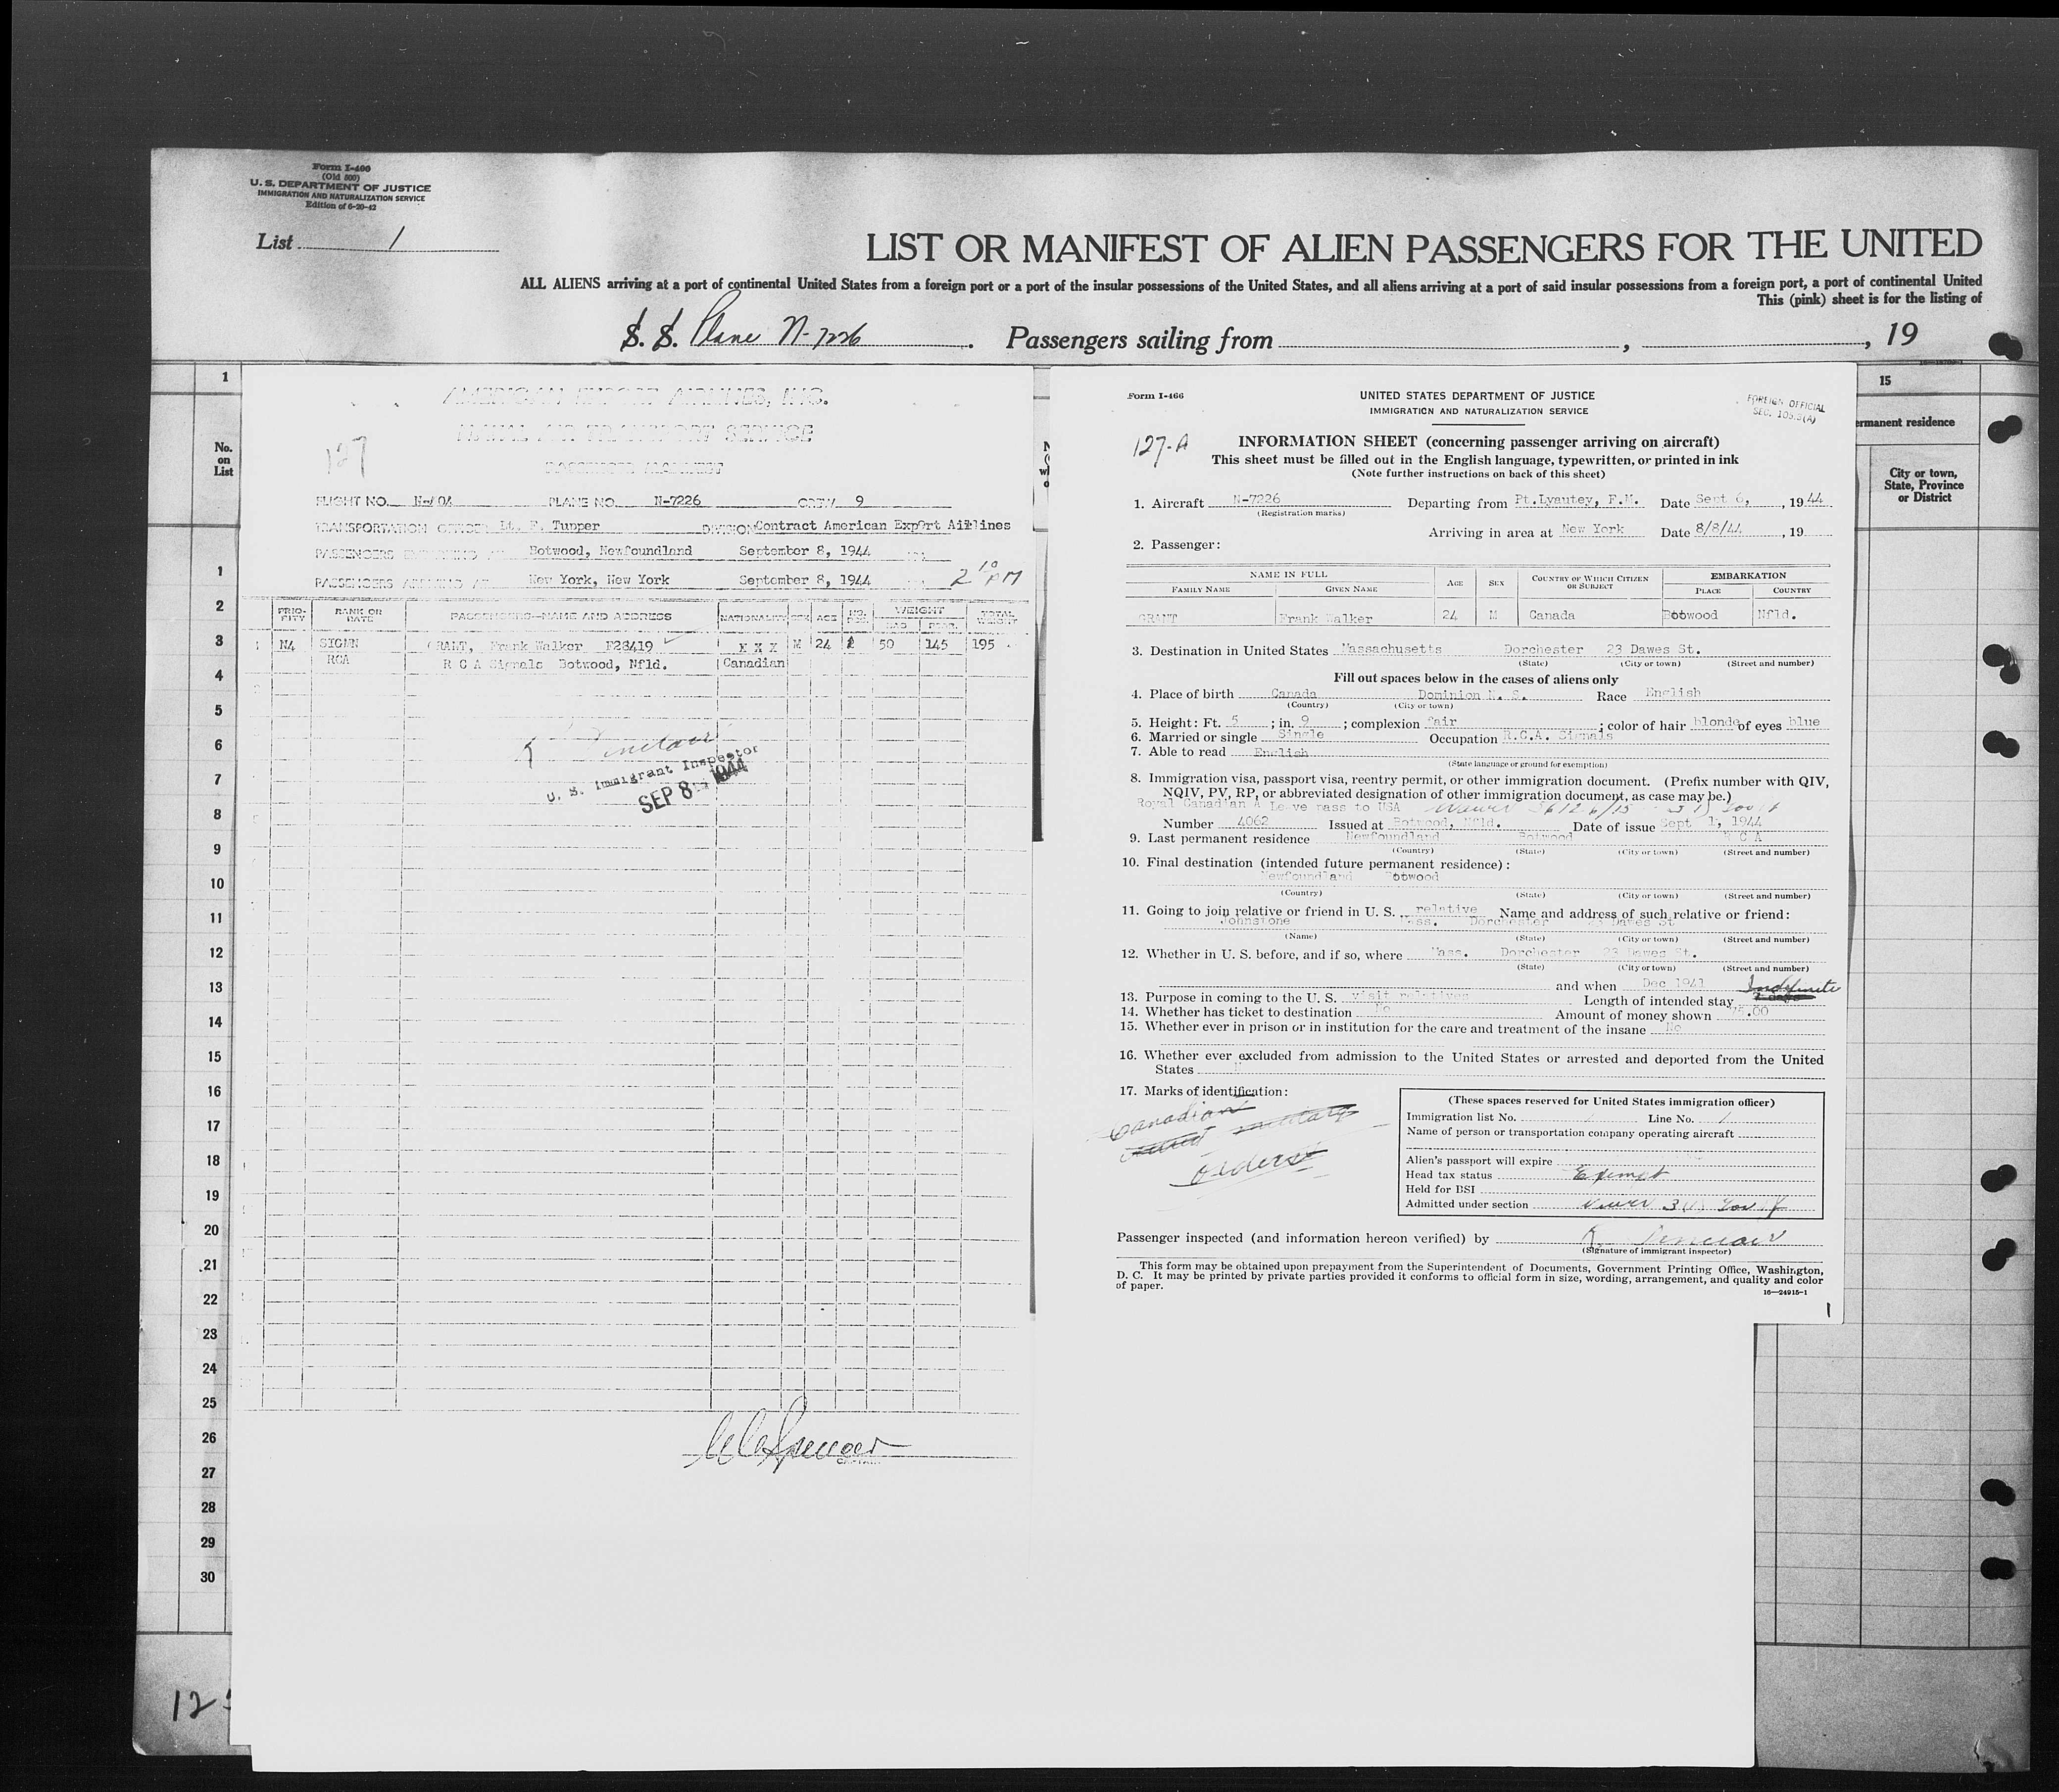 Form I-466
(Old 500)
U. S. DEPARTMENT OF JUSTICE
IMMIGRATION AND NATURALIZATION SERVICE
Edition of 6-20-42
List 1
LIST OR MANIFEST OF ALIEN PASSENGERS FOR THE UNITED
ALL ALIENS arriving at a port of continental United States from a foreign port or a port of the insular possessions of the United States, and all aliens arriving at a port of said insular possessions from a foreign port, a port of continental United
This (pink) sheet is for the listing of
S. S. Plane N-7226. Passengers sailing from , , 19
1
No. on List
1
2
3
4
5
6
7
8
9
10
11
12
13
14
15
16
17
18
19
20
21
22
23
24
25
26
27
28
29
30
AMERICAN EXPORT AIRLINES, INC.
NAVAL AIR TRANSPORT SERVICE
127
PASSENGER MANIFEST
FLIGHT NO. PLANE NO. N-7226 CREW 9
TRANSPORTATION OFFICER Lt. F. Tupper DIVISION Contract American Export Airlines
PASSENGERS Botwood, Newfoundland September 8, 1944
PASSENGERS ARRIVING AT New York, New York September 8, 1944 2 10 PM
PRIO-RITY RANK OR RATE PASSENGERS—NAME AND ADDRESS NATIONALITY SEX AGE NO. WEIGHT TOTAL WEIGHT
1 N4 SIGMN GRANT, Frank Walker F28419 X X X M 24 50 145 195
RCA R C A Signals Botwood, Nfld. Canadian
K Sinclair
U. S. Immigrant Inspector
SEP 8 1944
Spencer
CAPTAIN
Form I-466
UNITED STATES DEPARTMENT OF JUSTICE
IMMIGRATION AND NATURALIZATION SERVICE
FOREIGN OFFICIAL
SEC. 105.3(A)
127-A
INFORMATION SHEET (concerning passenger arriving on aircraft)
This sheet must be filled out in the English language, typewritten, or printed in ink
(Note further instructions on back of this sheet)
1. Aircraft N-7226 Departing from Pt.Lyautey, F.M. Date Sept 6, , 19 44
(Registration marks)
Arriving in area at New York Date 8/8/44 , 19
2. Passenger:
NAME IN FULL AGE SEX COUNTRY OF WHICH CITIZEN OR SUBJECT EMBARKATION
FAMILY NAME GIVEN NAME PLACE COUNTRY
GRANT Frank Walker 24 M Canada Botwood Nfld.
3. Destination in United States Massachusetts Dorchester 23 Dawes St.
(State) (City or town) (Street and number)
Fill out spaces below in the cases of aliens only
4. Place of birth Canada Dominion N. S. Race English
(Country) (City or town)
5. Height: Ft. 5 ; in. 9 ; complexion fair ; color of hair blonde of eyes blue
6. Married or single Single Occupation R.C.A. Signals
7. Able to read English
(State language or ground for exemption)
8. Immigration visa, passport visa, reentry permit, or other immigration document. (Prefix number with QIV,
NQIV, PV, RP, or abbreviated designation of other immigration document, as case may be.)
Royal Canadian A Leave pass to USA
Number 4062 Issued at Botwood, Nfld. Date of issue Sept 1, 1944
9. Last permanent residence Newfoundland Botwood R C A
(Country) (State) (City or town) (Street and number)
10. Final destination (intended future permanent residence):
Newfoundland Botwood
(Country) (State) (City or town) (Street and number)
11. Going to join relative or friend in U. S. relative Name and address of such relative or friend:
Johnstone Mass. Dorchester 23 Dawes St
(Name) (State) (City or town) (Street and number)
12. Whether in U. S. before, and if so, where Mass. Dorchester 23 Dawes St.
(State) (City or town) (Street and number)
and when Dec 1943 Indefinite
13. Purpose in coming to the U. S. visit relatives Length of intended stay
14. Whether has ticket to destination No Amount of money shown
15. Whether ever in prison or in institution for the care and treatment of the insane No
16. Whether ever excluded from admission to the United States or arrested and deported from the United
States
17. Marks of identification:
Canadian
military
orders
(These spaces reserved for United States immigration officer)
Immigration list No. 1 Line No. 1
Name of person or transportation company operating aircraft
Alien's passport will expire
Head tax status Exempt
Held for BSI
Admitted under section
Passenger inspected (and information hereon verified) by K Sinclair
(Signature of immigrant inspector)
This form may be obtained upon prepayment from the Superintendent of Documents, Government Printing Office, Washington,
D. C. It may be printed by private parties provided it conforms to official form in size, wording, arrangement, and quality and color
of paper.
16—24915-1
1
15
ermanent residence
City or town, State, Province or District